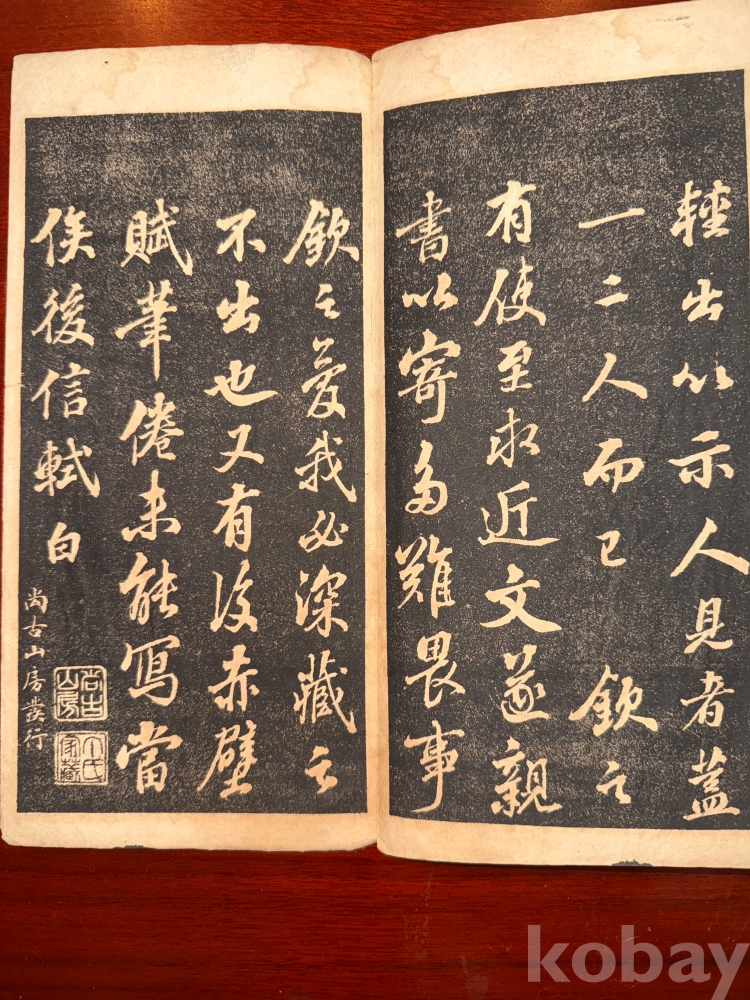 輕出以示人見者蓋
一二人而已 欽之
有使至求近文遂親
書以寄多難畏事
欽之愛我必深藏之
不出也又有後赤壁
賦筆倦未能寫當
俟後信軾白
尚古山房發行
尚古山房
家藏
kobay